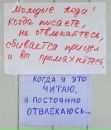 Молодые люди!
Когда писаете,
не отвлекайтесь,
сбивается прицел
и вы промахнётесь
КОГДА Я ЭТО
ЧИТАЮ,
Я ПОСТОЯННО
ОТВЛЕКАЮСЬ...